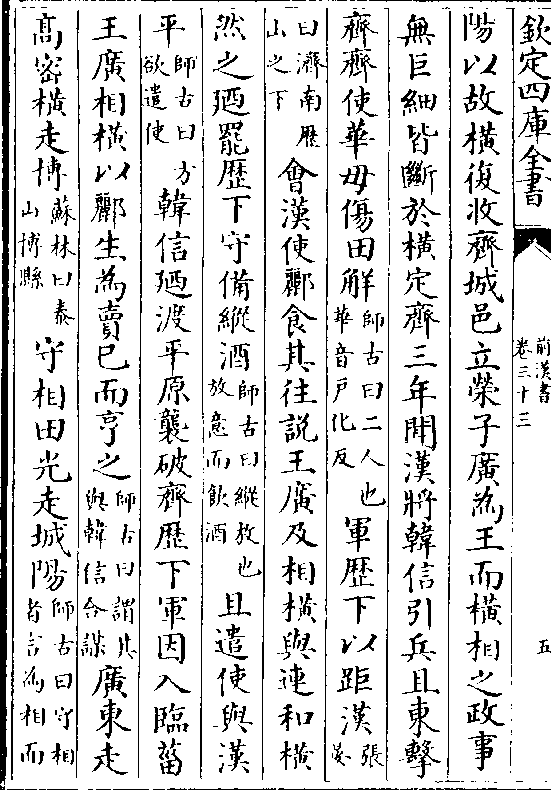 欽定四庫全書
前漢書
卷三十三
五
陽以故橫復收齊城邑立榮子廣為王而橫相之政事
無巨細皆斷於橫定齊三年聞漢將韓信引兵且東擊
齊齊使華毋傷田解師古曰二人也華音戸化反軍歷下以距漢張晏
曰濟南歷山之下會漢使酈食其往說王廣及相橫與連和橫
然之廼罷歷下守備縱酒師古曰縱放也放意而飲酒且遣使與漢
平師古曰方欲遣使韓信廼渡平原襲破齊歷下軍因入臨菑
王廣相橫以酈生為賣已而亨之師古曰謂其與韓信合謀廣東走
髙密橫走博蘇林曰泰山博縣守相田光走城陽師古曰守相者言為相而